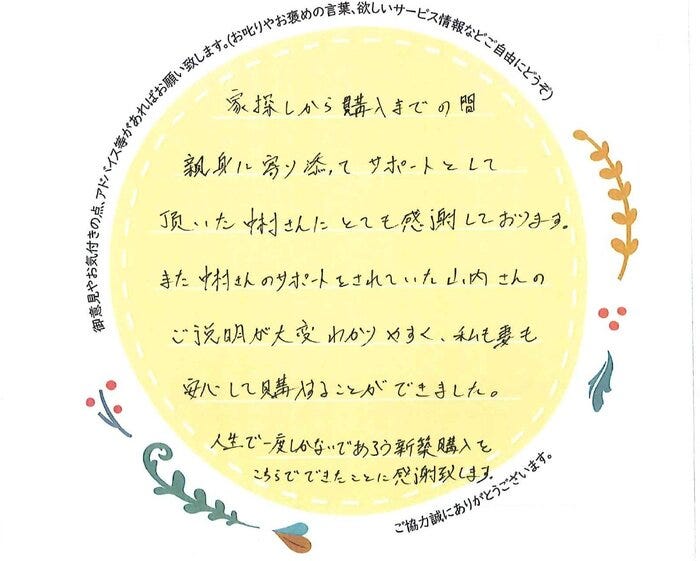 御意見やお気付きの点、アドバイス等があればお願い致します。(お叱りやお褒めの言葉、欲しいサービス情報などご自由にどうぞ)
家探しから購入までの間
親身に寄り添って サポートとして
頂いた中村さんにとても感謝しております。
また中村さんのサポートをされていた山内さんの
ご説明が大変わかりやすく、私も妻も
安心して購入することができました。
人生で一度しかないであろう新築購入を
こちらでできたことに感謝致します。
ご協力誠にありがとうございます。